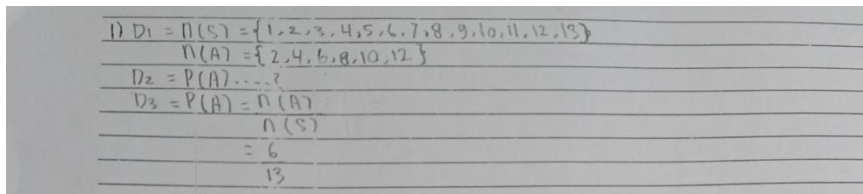 1) D1 = n(S) = {1,2,3,4,5,6,7,8,9,10,11,12,13}
n(A) = {2,4,6,8,10,12}
D2 = P(A)....?
D3 = P(A) = n(A)
n(S)
= 6
13